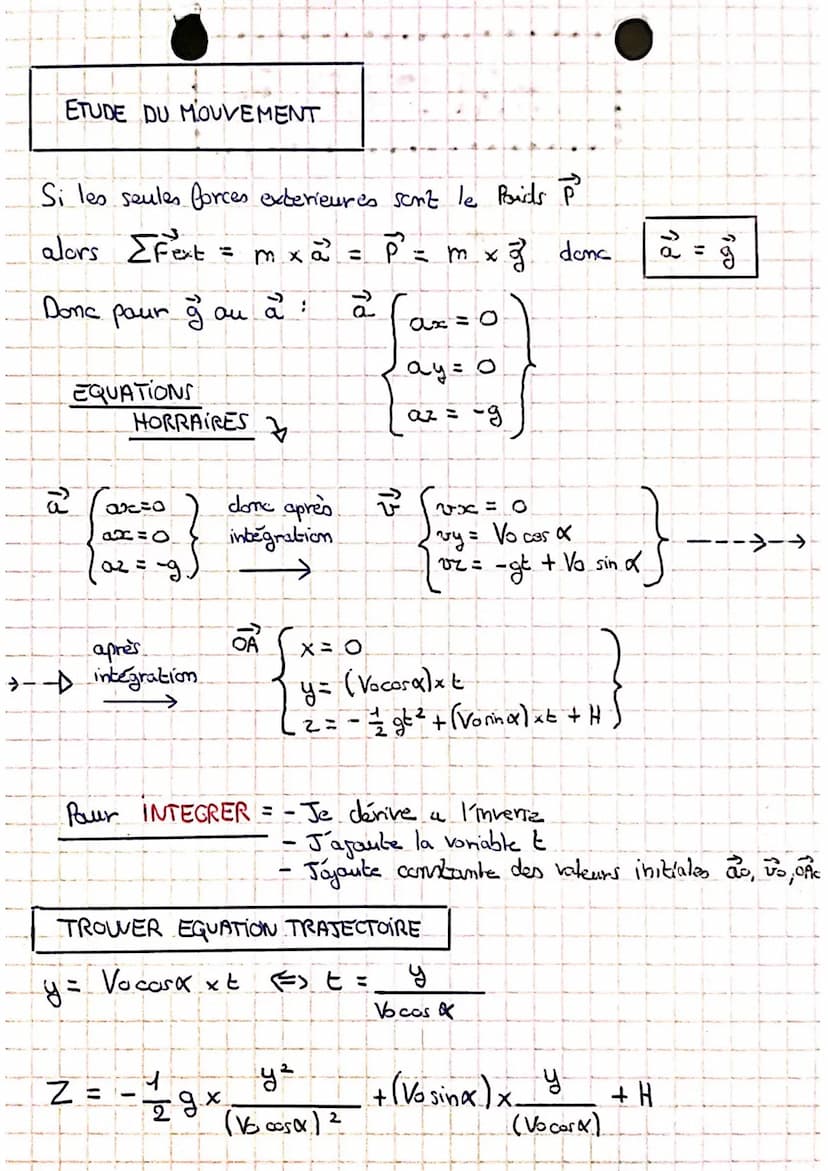 ETUDE DU MOUVEMENT
Si les seules forces exterieures sont le Poids P⃗
alors ΣF⃗ext = m x a⃗ = P⃗ = m x g⃗ donc a⃗ = g⃗
Donc pour g⃗ ou a⃗ : a⃗ { ax = 0
ay = 0
az = -g }
EQUATIONS
HORRAIRES ↴
a⃗ { ax=0
ax=0
az = -g }
donc après
intégration
→
v⃗ { vx = 0
vy = Vo cos α
vz = -gt + Vo sin α } --->-->
>--▷ après
intégration
→
OA⃗ { x = 0
y = (Vo cos α) x t
z = - 1/2 gt² + (Vo sin α) x t + H }
Pour INTEGRER = - Je dérive a l'inverse
- J'ajoute la variable t
- J'ajoute constante des valeurs initiales a⃗o, v⃗o, OA⃗o
TROUVER EQUATION TRAJECTOIRE
y = Vo cos α x t <=> t = y / Vo cos α
Z = - 1/2 g x y² / (Vo cos α)² + (Vo sin α) x y / (Vo cos α) + H